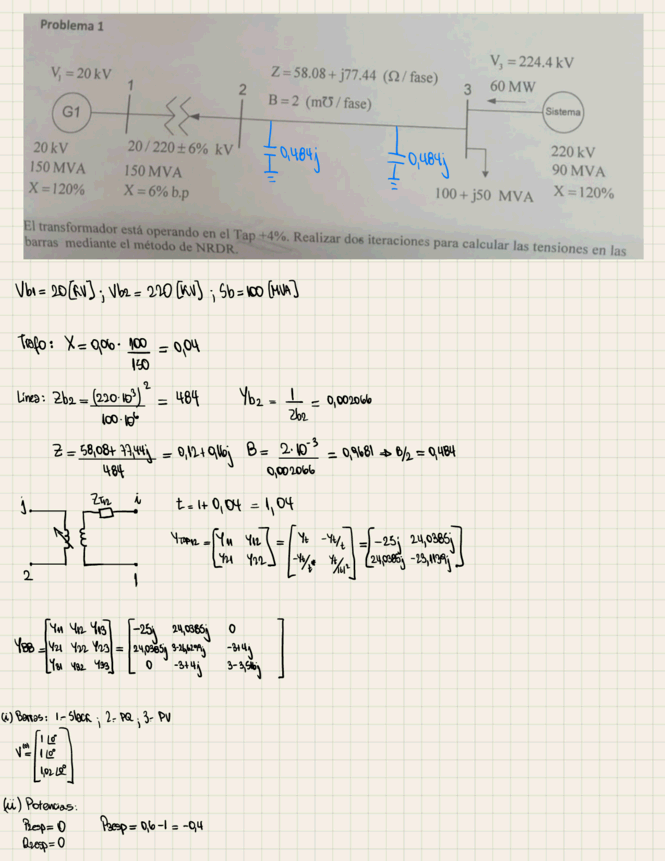 Problema 1
V₁ = 20 kV
1
G1
20 kV
150 MVA
X = 120%
20/220 ± 6% kV
150 MVA
X = 6% b.p
2
Z = 58.08 + j77.44 (Ω/fase)
B = 2 (m℧/fase)
0,484j
0,484j
3
V₃ = 224.4 kV
60 MW
Sistema
220 kV
90 MVA
X = 120%
100 + j50 MVA
El transformador está operando en el Tap +4%. Realizar dos iteraciones para calcular las tensiones en las
barras mediante el método de NRDR.
Vb1 = 20 [kV] ; Vb2 = 220 [kV] ; Sb = 100 [MVA]
Trafo: X = 0,06 · 100/150 = 0,04
Línea: Zb2 = (220·10³)²/100·10⁶ = 484 Yb2 = 1/Zb2 = 0,002066
Z = 58,08 + 77,44j/484 = 0,12 + 0,16j B = 2·10⁻³/0,002066 = 0,9681 ⇒ B/2 = 0,484
j ZTR12 i
2 1
t = 1 + 0,04 = 1,04
YTAP12 = [Y11 Y12; Y21 Y22] = [Yt -Yt/t; -Yt/t* Yt/|t|²] = [-25j 24,0385j; 24,0385j -23,1139j]
YBB = [Y11 Y12 Y13; Y21 Y22 Y23; Y31 Y32 Y33] = [-25j 24,0385j 0; 24,0385j 3-26,6299j -3+4j; 0 -3+4j 3-3,516j]
(i) Barras: 1.- Slack ; 2.- PQ ; 3.- PV
V⁽⁰⁾ = [1∠0°; 1∠0°; 1,02∠0°]
(ii) Potencias:
P2esp = 0 P3esp = 0,6 - 1 = -0,4
Q2esp = 0